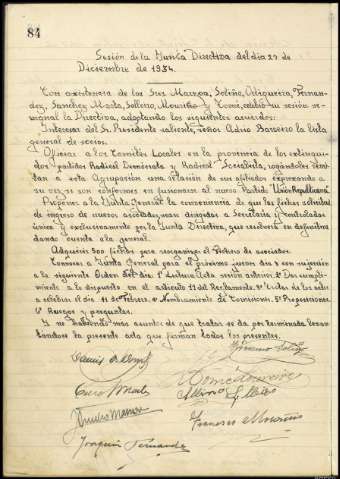 84
Sesión de la Junta Directiva del día 27 de
Diciembre de 1934.
Con asistencia de los Sres Marzoa, Soliño, Fernan-
dez, Sanchez Mosta, Solleiro, Mouriño y Tomé, celebró su sesión se-
manal la Directiva, adoptando los siguientes acuerdos:
Interesar del Sr. Presidente saliente, señor Adrio Barreiro la lista
general de socios.
Oficiar a los Comités Locales en la provincia de los extingui-
dos partidos Radical Demócrata y Radical Socialista, rogándoles remi-
tan a esta Agrupación una relación de sus afiliados expresando a
su vez, si son conformes en fusionarse al nuevo Partido "Unión Republicana"
Proponer a la Junta General la conveniencia de que las fichas solicitud
de ingreso de nuevos asociados, sean dirigidas a Secretaría y controladas
única y exclusivamente por la Junta Directiva, que resolverá en definitiva
dando cuenta a la general.
Adquirir 500 fichas para reorganizar el fichero de asociados.
Convocar a Junta General para el próximo jueves día 3 con sujeción
a la siguiente Orden del día: 1º Lectura acta sesión anterior. 2º Dar cumpli-
miento a lo dispuesto en el artículo 11 del Reglamento. 3º
a celebrar el día 11 de Febrero. 4º Nombramiento de Comisiones. 5º Proposiciones.
6º Ruegos y preguntas.
Y no habiendo más asuntos de que tratar se da por terminada levan-
tándose la presente acta que firman todos los presentes.
Joaquin Fernandez
Francisco Mouriño